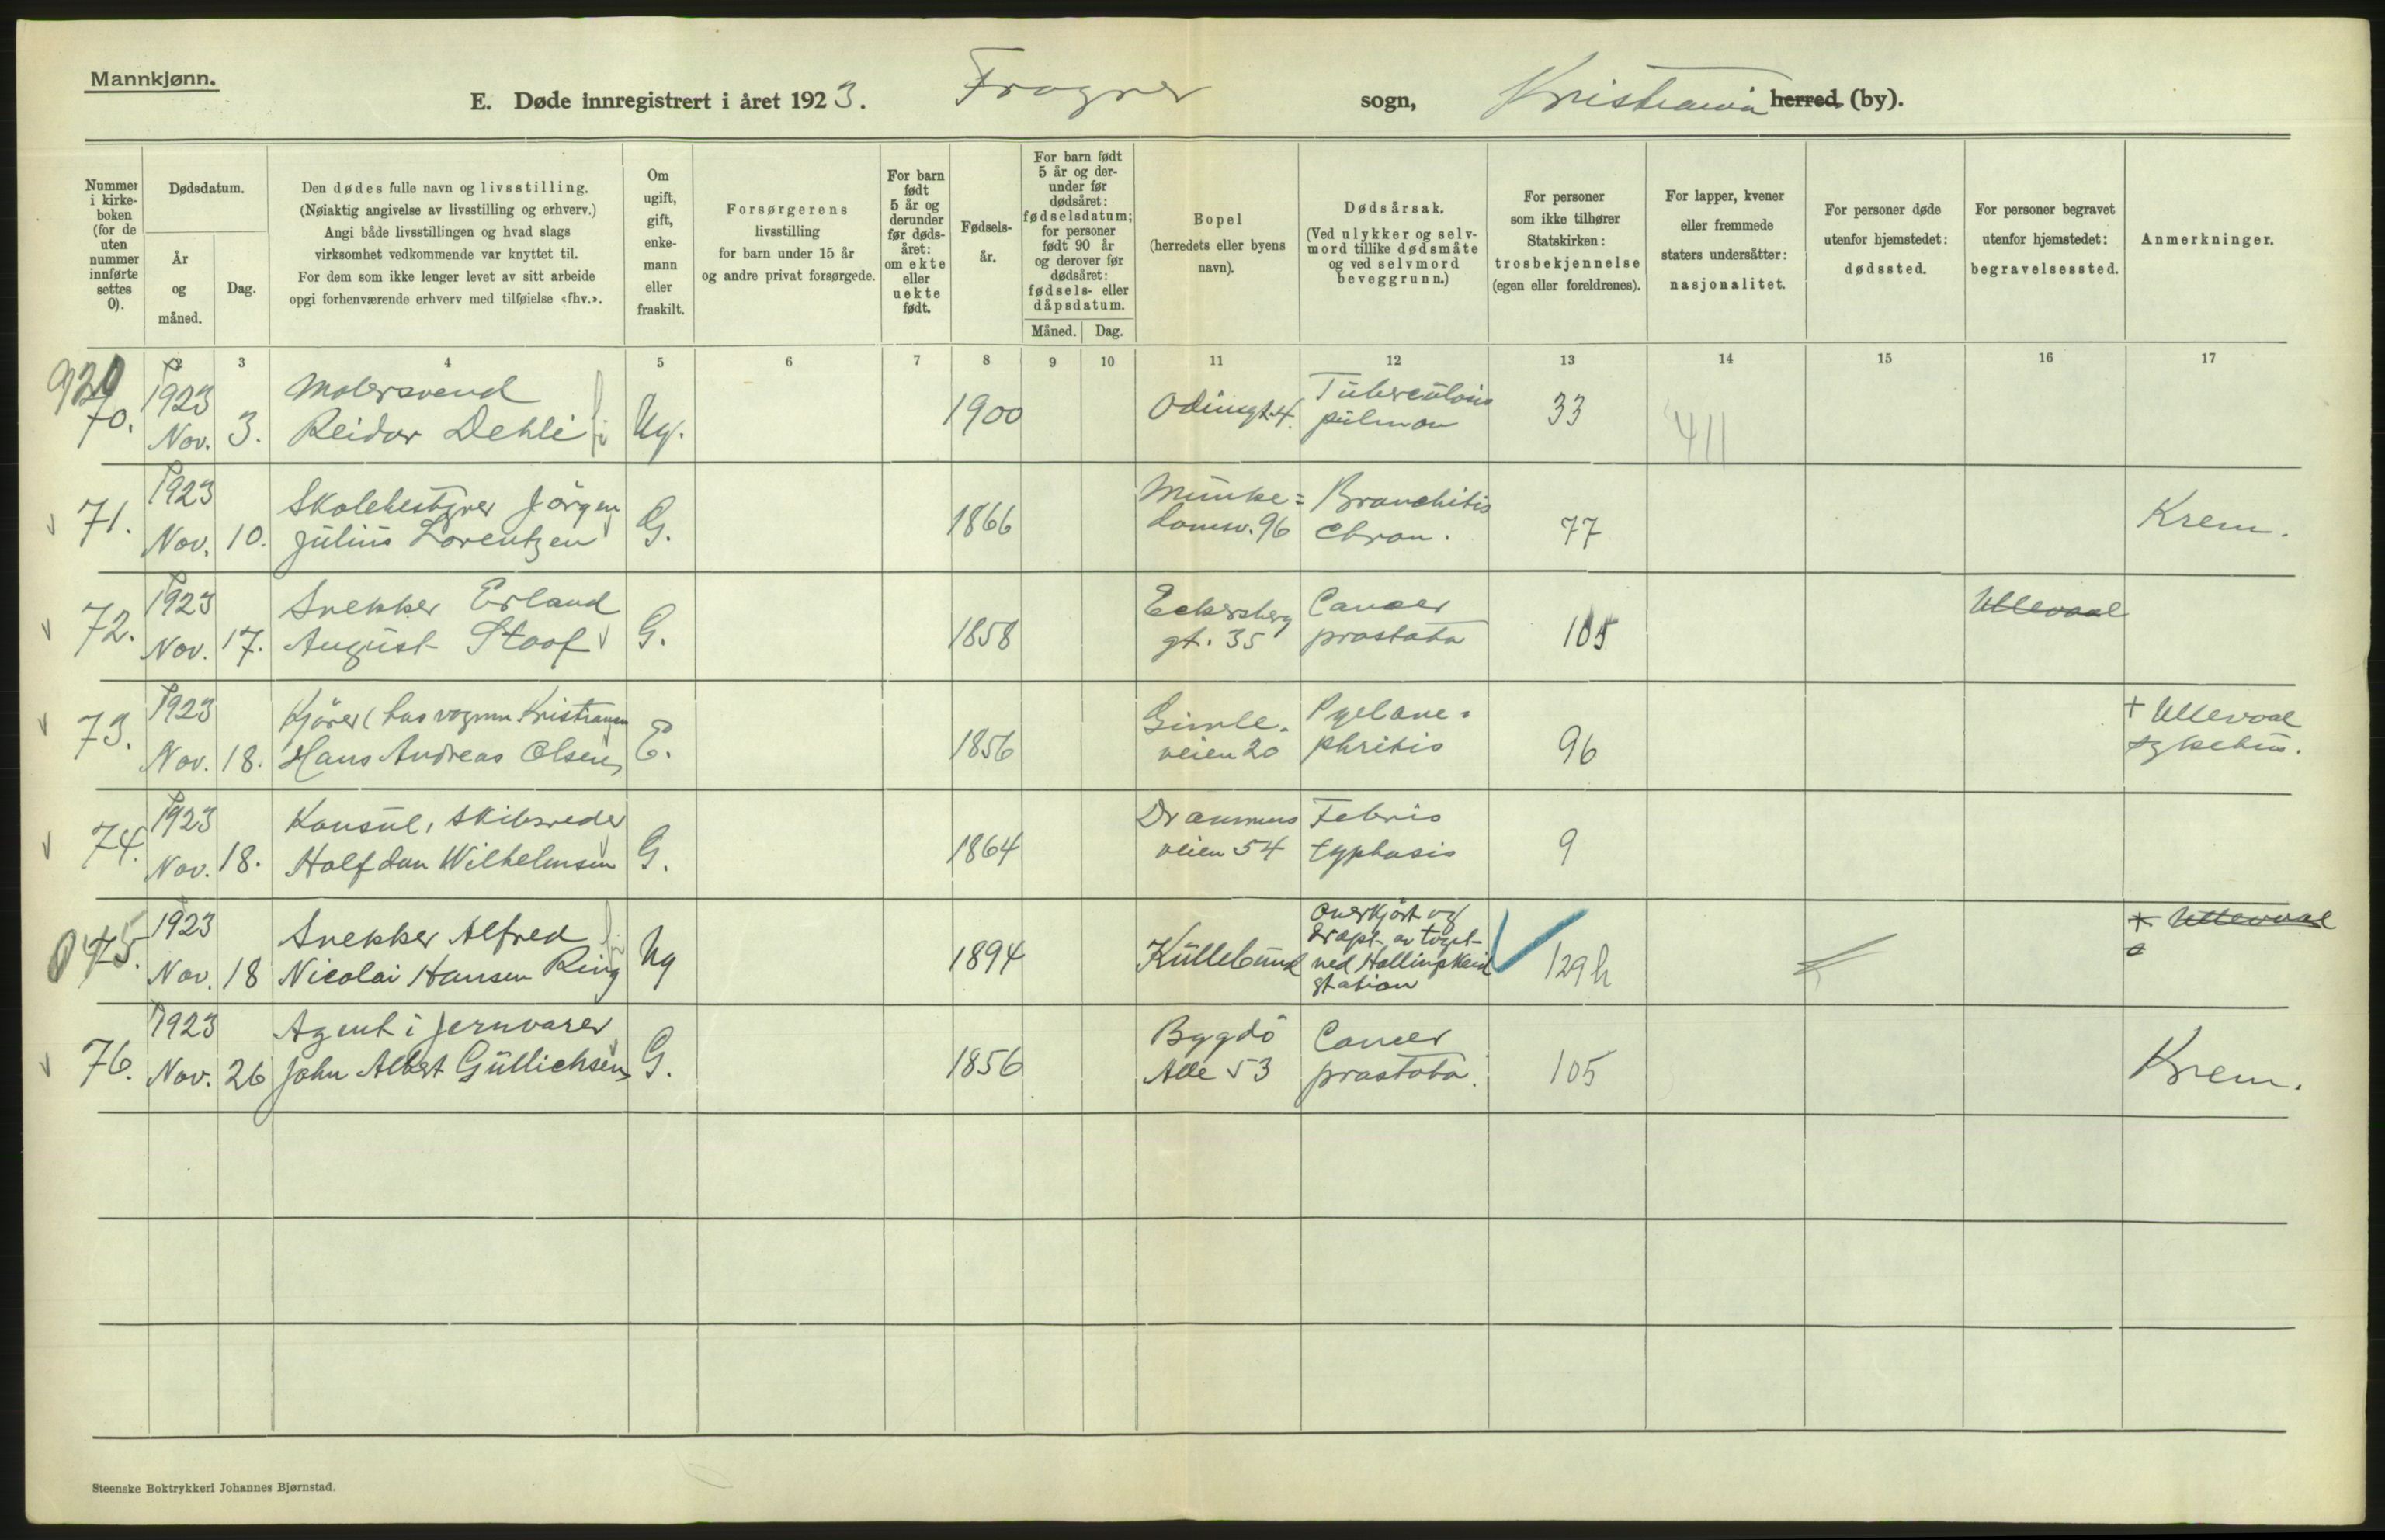 Mannkjønn.
E. Døde innregistrert i året 1923. Frogner sogn, Kristiania herred (by).
Nummer i kirkeboken (for de uten nummer innførte settes 0).
Dødsdatum.
År og måned.
Dag.
Den dødes fulle navn og livsstilling.
(Nøiaktig angivelse av livsstilling og erhverv.)
Angi både livsstillingen og hvad slags
virksomhet vedkommende var knyttet til.
For dem som ikke lenger levet av sitt arbeide
opgi forhenværende erhverv med tilføielse «fhv.».
Om ugift, gift, enkemann eller fraskilt.
Forsørgerens
livsstilling
for barn under 15 år
og andre privat forsørgede.
For barn født 5 år og derunder før dødsåret: om ekte eller uekte født.
Fødselsår.
For barn født 5 år og derunder før dødsåret: fødselsdatum; for personer født 90 år og derover før dødsåret: fødsels- eller dåpsdatum.
Måned. Dag.
Bopel
(herredets eller byens
navn).
Dødsårsak.
(Ved ulykker og selvmord tillike dødsmåte og ved selvmord beveggrunn.)
For personer
som ikke tilhører
Statskirken:
trosbekjennelse
(egen eller foreldrenes).
For lapper, kvener
eller fremmede
staters undersåtter:
nasjonalitet.
For personer døde
utenfor hjemstedet:
dødssted.
For personer begravet
utenfor hjemstedet:
begravelsessted.
Anmerkninger.
2 3 4 5 6 7 8 9 10 11 12 13 14 15 16 17
70. 1923 Nov. 3. Malersvend
Reidar Dehli Ug. 1900 Odinsgt. 4. Tuberculosis
pulmon 33 411
71. 1923 Nov. 10. Skolebestyrer Jörgen
Julius Lorentzen G. 1866 Munke=
damsv. 96 Bronchitis
chron. 77 Krem.
72. 1923 Nov. 17. Snekker Erland
August Stoof G. 1858 Eckersberg
gt. 35 Cancer
prostata 105 Ullevaal
73. 1923 Nov. 18. Kjörer
Hans Andreas Olsen E. 1856 Gimle-
veien 20 Pyelone-
phritis 96 + Ullevaal
sykehus.
74. 1923 Nov. 18. Konsul, skibsreder
Halfdan Wilhelmsen G. 1864 Drammens
veien 54 Febris
typhosis 9
75. 1923 Nov. 18 Snekker Alfred
Nicolai Hansen Ring Ug 1894 Kullebund Overkjört og
dræpt av toget
ved Hallingskeid
station 129h Ullevaal
76. 1923 Nov. 26 Agent i Jernvarer
John Albert Güllichsen G. 1856 Bygdö
Alle 53 Cancer
prostata. 105 Krem.
Steenske Boktrykkeri Johannes Bjørnstad.